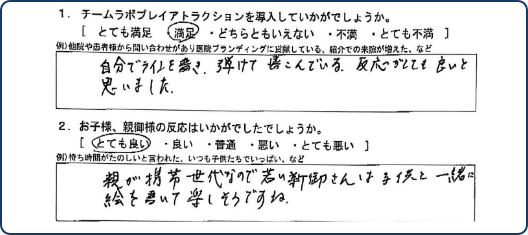 1．チームラボプレイアトラクションを導入していかがでしょうか。
[ とても満足 ・満足 ・どちらともいえない ・不満 ・とても不満 ]
例）他院や患者様から問い合わせがあり医院ブランディングに貢献している、紹介での来院が増えた、など
自分でラインを書き、弾けて喜こんでいる。反応がとても良いと
思いました。
2．お子様、親御様の反応はいかがでしたでしょうか。
[ とても良い ・良い ・普通 ・悪い ・とても悪い ]
例）待ち時間がたのしいと言われた、いつも子供たちでいっぱい、など
親が携帯世代なので若い親御さんは子供と一緒に
絵を書いて楽しそうですね。